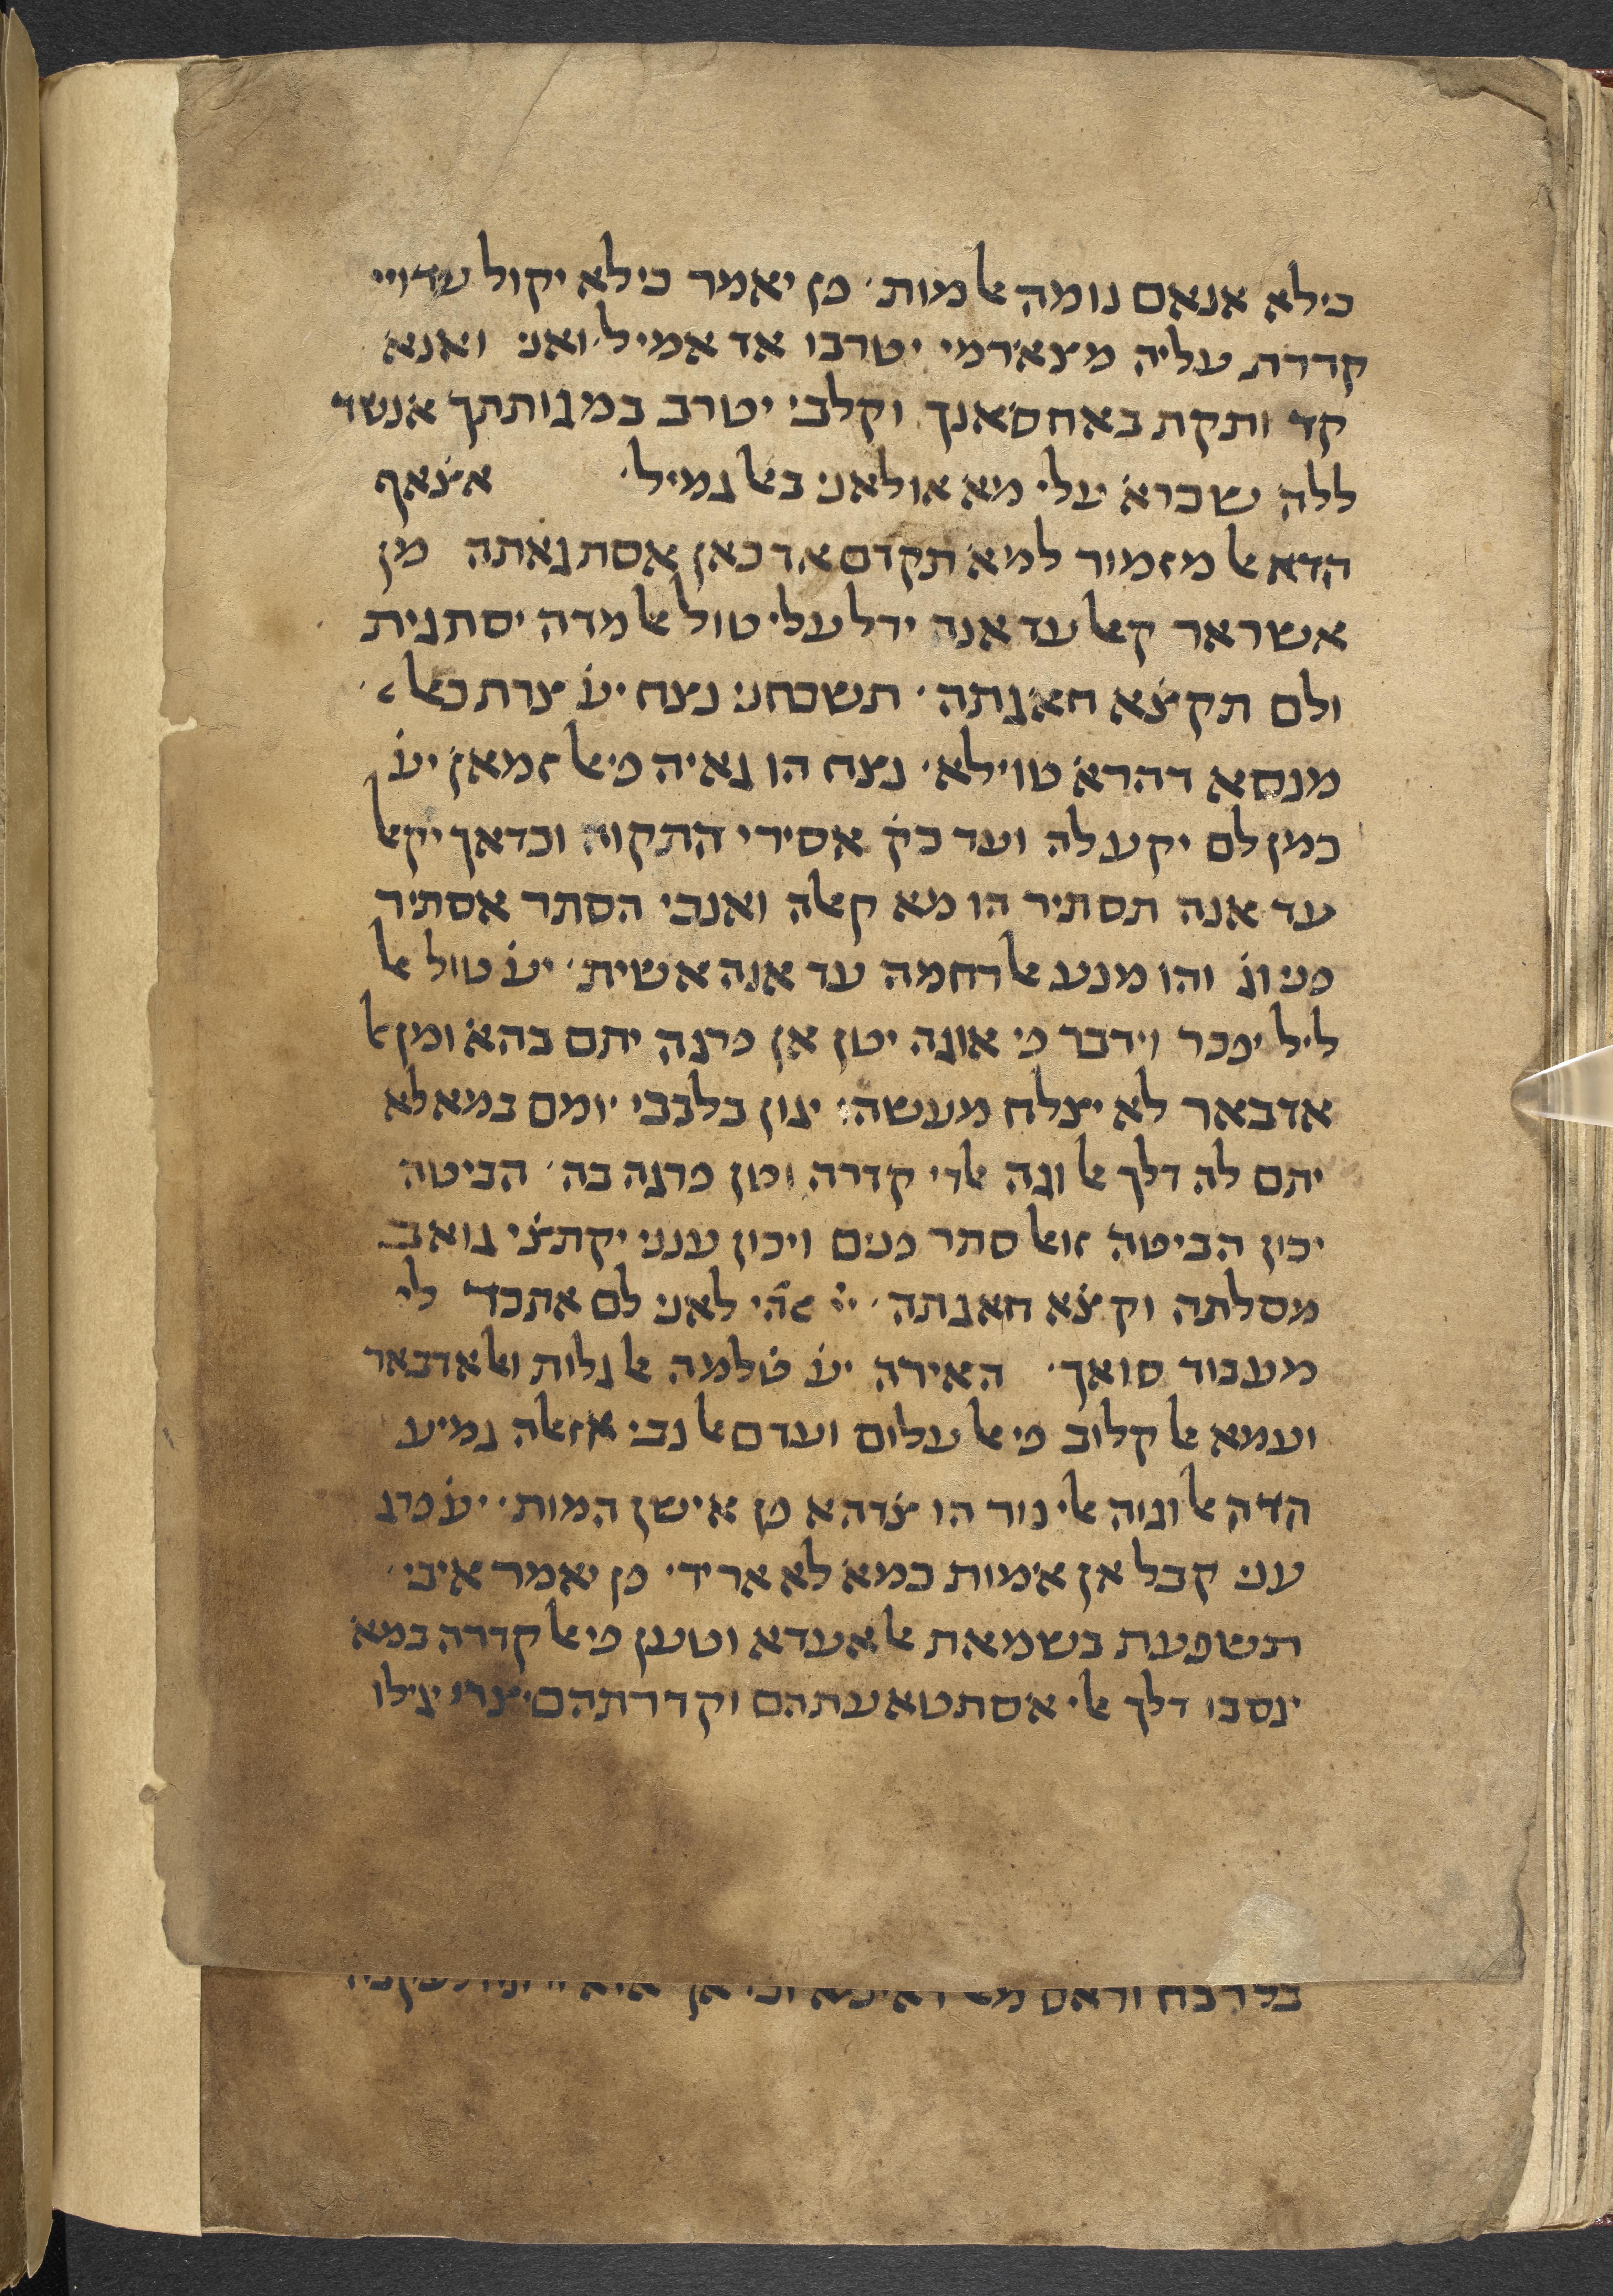 כילא אנאם נומה אלמות׳ פן יאמר כילא יקול עדויי
קדרת עליה מצאימי יטרבו אד אמיל׳ ואני ואנא
קד ותקת באחסאנך וקלבי יטרב במגותתך אנשד
ללה שכרא עלי מא אולאני באלגמיל׳ אצאף
הדא אלמזמור למא תקדם אד כאן אסתגאתה מן
אשראר קאל עד אנה ידל עלי טול אלמדה יסתגית
ולם תקצא חאגתה׳ תשכחני נצח יע׳ צרת כאל
מנסא דהרא טוילא׳ נצח הו גאיה פי אלזמאן יע׳
כמן לם יקע לה ועד כק׳ אסירי התקוה וכדאך יקאל
עד אנה תסתיר הו מא קאלה ואנכי הסתר אסתיר
פני וג׳ והו מנע אלרחמה עד אנה אשית׳ יע׳ טול אל
ליל יפכר וידבר פי אוגה יטן אן פרגה יתם בהא ומן אל
אדבאר לא יצלח מעשה׳ יגון בלבבי יומם במא לא
יתם לה דלך אלוגה אלדי קדרה וטן פרגה בה׳ הביטה
יכון הביטה זואל סתר פנים ויכון ענני יקתצי גואב
מסלתה וקצא חאגתה׳ יי אלהי לאני לם אתכד לי
מעבוד סואך׳ האירה יע׳ טלמה אלגלות ואלאדבאר
ועמא אלקלוב פי אלעלום ועדם אלנבי אזאלה גמיע
הדה אלוגוה אלי נור הו צדהא פן אישן המות׳ יע׳ פרג
עני קבל אן אמות כמא לא אריד׳ פן יאמר איבי
תשפעת בשמאת אלאעדא וטען פי אלקדרה במא
ינסבו דלך אלי אסתטאעתהם וקדרתהם׳ צרי יגילו